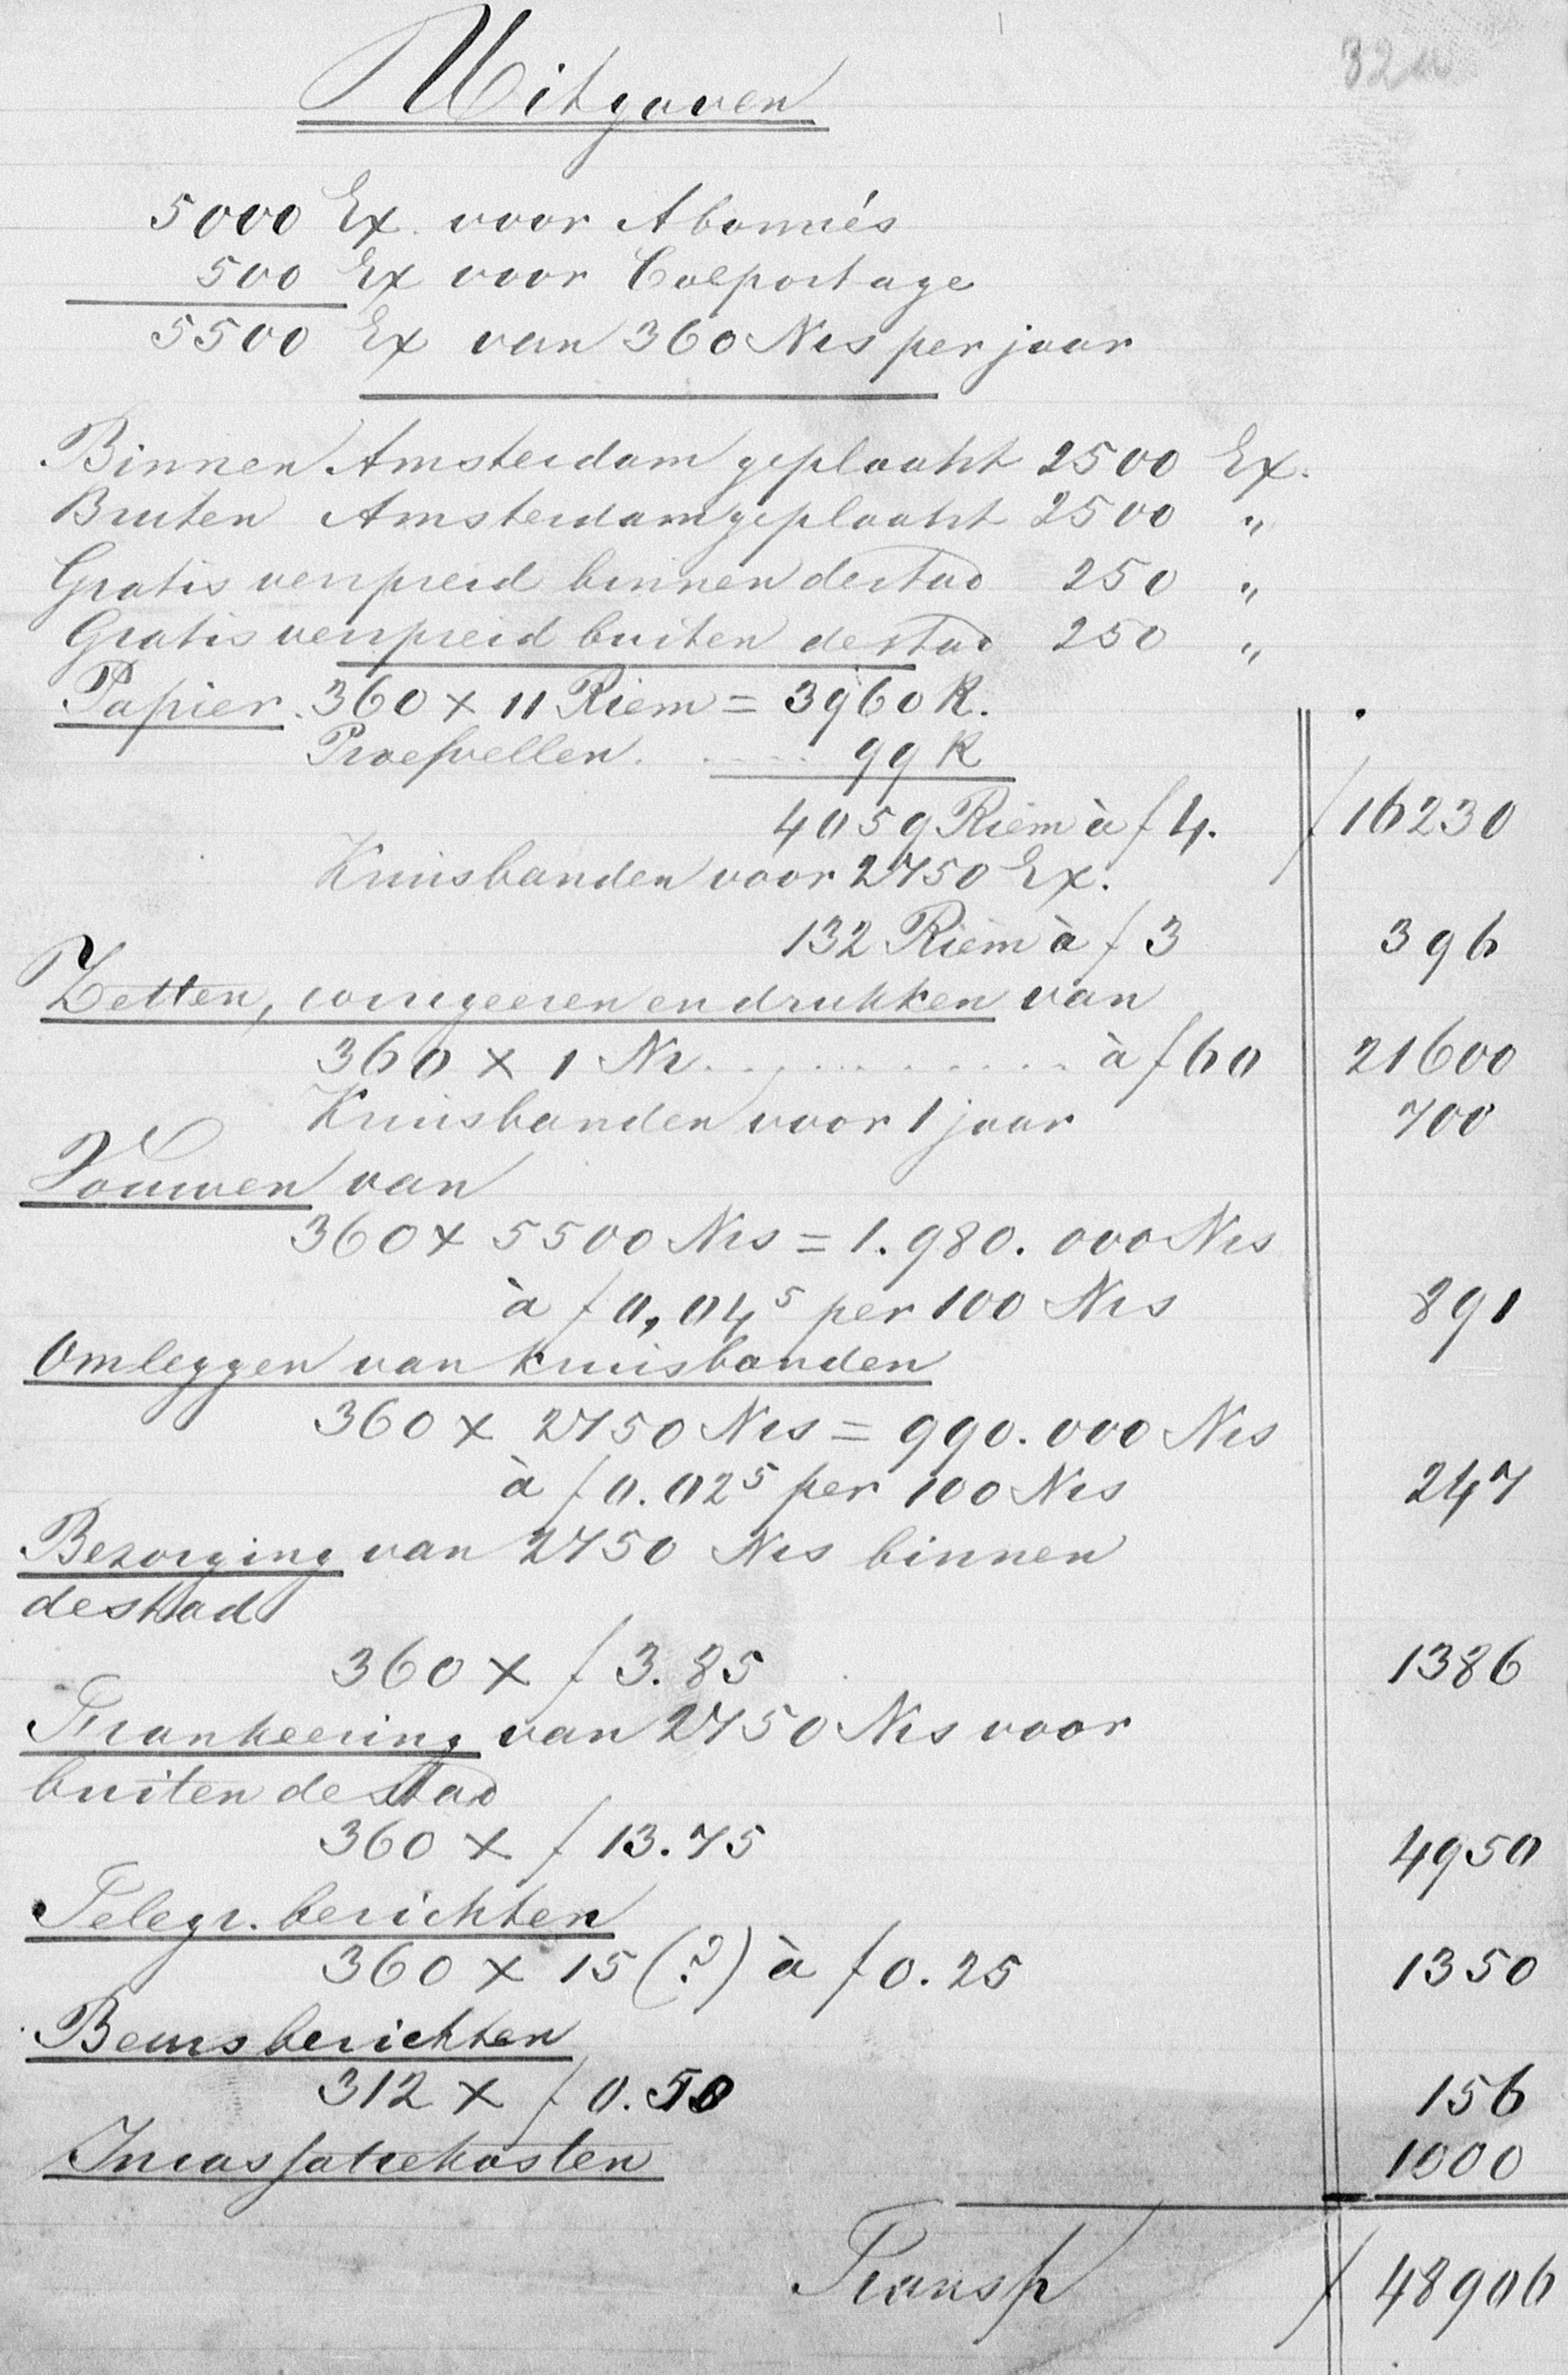 32a
Uitgaven
5000 Ex. voor Abonnés
500 Ex voor Colportage
5500 Ex van 360 Nrs per jaar
Binnen Amsterdam geplaatst 2500 Ex.
Buiten Amsterdam geplaatst 2500 "
Gratis verspreid binnen de stad 250 "
Gratis verspreid buiten de stad 250 "
Papier. 360 x 11 Riem = 3960 R.
Proefvellen. ..... 99 R
4059 Riem à f 4. f 16230
Kruisbanden voor 2750 Ex.
132 Riem à f 3 396
Zetten, corrigeeren en drukken van
360 x 1 Nr. ............ à f 60 21600
Kruisbanden voor 1 jaar 700
Vouwen van
360 x 5500 Nrs = 1.980.000 Nrs
à f 0,04⁵ per 100 Nrs 891
Omleggen van kruisbanden
360 x 2750 Nrs = 990.000 Nrs
à f 0.02⁵ per 100 Nrs 247
Bezorging van 2750 Nrs binnen
de stad
360 x f 3.85 1386
Frankeering van 2750 Nrs voor
buiten de stad
360 x f 13.75 4950
Telegr. berichten
360 x 15 (?) à f 0.25 1350
Beursberichten
312 x f 0.50 156
Incassatiekosten 1000
Transp f 48906